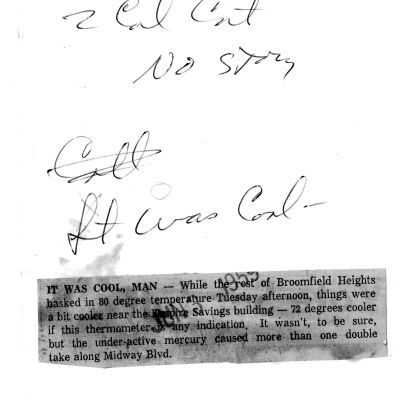 2 Col Cut
No Story
It was Cool -
IT WAS COOL, MAN — While the rest of Broomfield Heights
basked in 80 degree temperature Tuesday afternoon, things were
a bit cooler near the Empire Savings building — 72 degrees cooler
if this thermometer is any indication. It wasn't, to be sure,
but the under-active mercury caused more than one double
take along Midway Blvd.